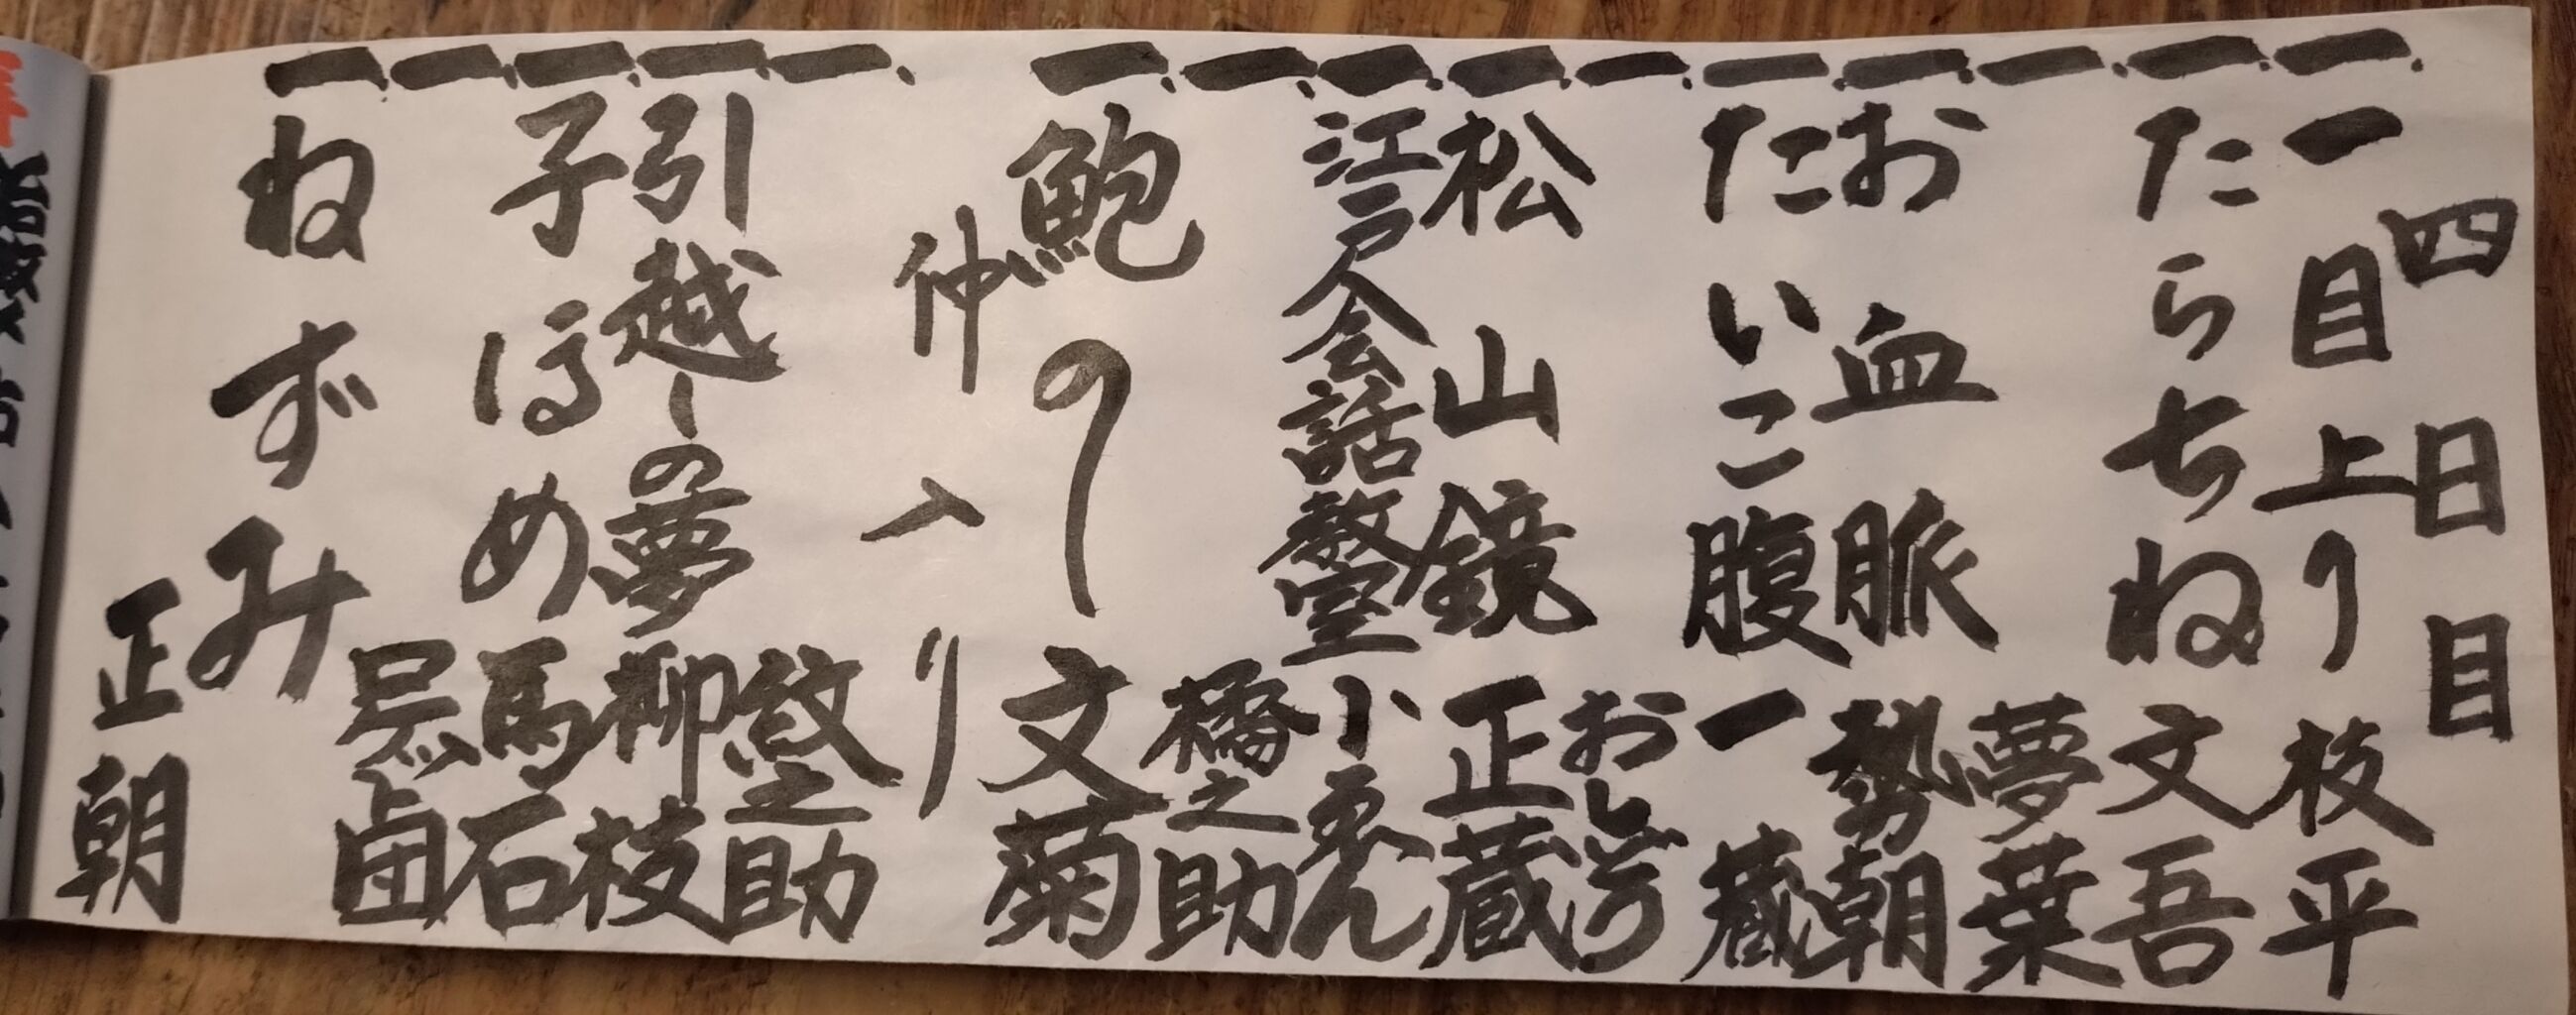 四日目
一、一目上り 枝平
一、たらちね 文吾
一、夢葉
一、お血脈 勢朝
一、たいこ腹 一蔵
一、おしどり
一、松山鏡 正蔵
一、江戸人会話教室 小ゑん
一、橘之助
一、鮑のし 文菊
仲入り
一、紋之助
一、引越しの夢 柳枝
一、子ほめ 馬石
一、ロケット団
一、ねずみ 正朝